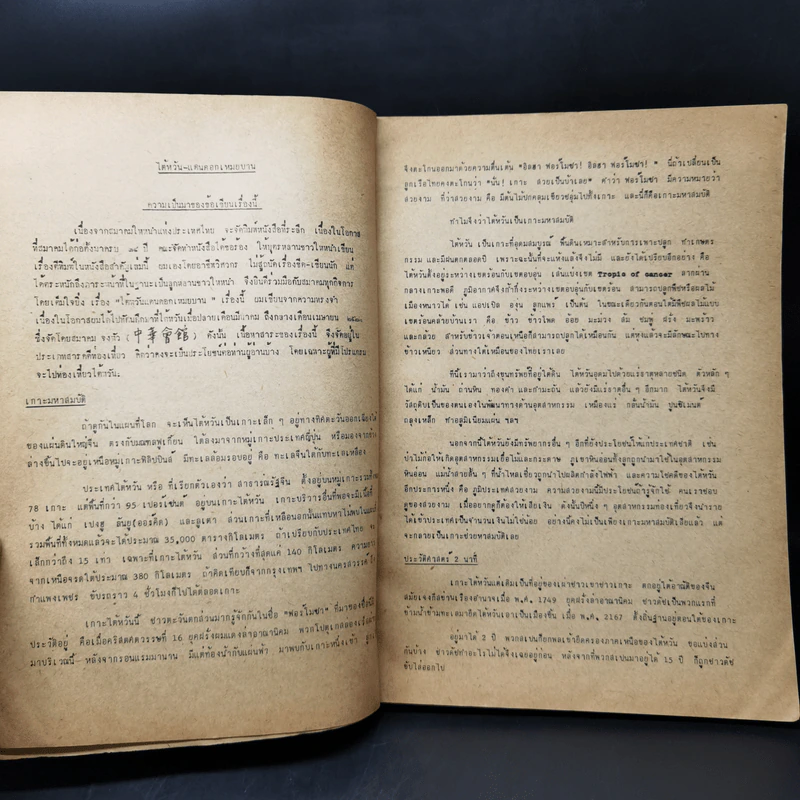 ไต้หวัน-แดนดอกเหมยบาน
ความเป็นมาของข้อเขียนเรื่องนี้
เนื่องจากสมาคมไหหนำแห่งประเทศไทย จะจัดพิมพ์หนังสือที่ระลึก เนื่องในโอกาส
ที่สมาคมได้ก่อตั้งมาครบ ปี คณะจัดทำหนังสือได้ขอร้อง ให้บุตรหลานชาวไหหนำเขียน
เรื่องที่พิมพ์ในหนังสือสำคัญเล่มนี้ ผมเองโดยอาชีพวิศวกร ไม่สู้ถนัดเรื่องขีด-เขียนนัก แต่
ได้ตระหนักถึงภาระหน้าที่ในฐานะเป็นลูกหลานชาวไหหนำ จึงยินดีร่วมมือกับสมาคมทุกกิจการ
โดยเต็มใจยิ่ง เรื่อง "ไต้หวันแดนดอกเหมยบาน" เรื่องนี้ ผมเขียนจากความทรงจำ
เนื่องในโอกาสผมได้ไปทัศนศึกษาที่ไต้หวันเมื่อปลายเดือนมีนาคม ถึงกลางเดือนเมษายน
ซึ่งจัดโดยสมาคม จงหัว (中華會館) ดังนั้น เนื้อหาสาระของเรื่องนี้ จึงจัดอยู่ใน
ประเภทสารคดีท่องเที่ยว คิดว่าคงจะเป็นประโยชน์ต่อท่านผู้อ่านบ้าง โดยเฉพาะผู้ที่มีโปรแกรม
จะไปท่องเที่ยวไต้หวัน
เกาะมหาสมบัติ
ถ้าดูกันในแผนที่โลก จะเห็นไต้หวันเป็นเกาะเล็ก ๆ อยู่ทางทิศตะวันออกเฉียงใต้
ของแผ่นดินใหญ่จีน ตรงกับมณฑลฟูเกี้ยน ใต้ลงมาจากหมู่เกาะประเทศญี่ปุ่น หรือมองจากข้าง
ล่างขึ้นไปจะอยู่เหนือหมู่เกาะฟิลิปปินส์ มีทะเลล้อมรอบอยู่ คือ ทะเลจีนใต้กับทะเลเหลือง
ประเทศไต้หวัน หรือ ที่เรียกตัวเองว่า สาธารณรัฐจีน ตั้งอยู่บนหมู่เกาะรวมทั้งหมด
78 เกาะ แต่พื้นที่กว่า 95 เปอร์เซนต์ อยู่บนเกาะไต้หวัน เกาะบริวารอื่นที่พอจะมีเนื้อที่
บ้าง ได้แก่ เปงฮู ลันยู(ออร์คิด) และลูเตา ส่วนเกาะที่เหลือนอกนั้นแทบหาไม่พบในแผนที่
รวมพื้นที่ทั้งหมดแล้วจะได้ประมาณ 35,000 ตารางกิโลเมตร ถ้าเปรียบกับประเทศไทย จะ
เล็กกว่าถึง 15 เท่า เฉพาะที่เกาะไต้หวัน ส่วนที่กว้างที่สุดแค่ 140 กิโลเมตร ความยาว
จากเหนือจรดใต้ประมาณ 380 กิโลเมตร ถ้าคิดเทียบก็จากกรุงเทพฯ ไปทางนครสวรรค์ ถึง
กำแพงเพชร ขับรถราว 4 ชั่วโมงก็ไปได้ตลอดเกาะ
เกาะไต้หวันนี้ ชาวตะวันตกส่วนมากรู้จักกันในชื่อ "ฟอร์โมซา" ที่มาของชื่อนี้มี
ประวัติอยู่ คือเมื่อคริสตศตวรรษที่ 16 ยุคฝรั่งผมแดงล่าอาณานิคม พวกโปตุเกสล่องเรือ
มาบริเวณนี้ หลังจากรอนแรมมานาน มีแต่ท้องน้ำกับแผ่นฟ้า มาพบกับเกาะหนึ่งเข้า
จึงตะโกนออกมาด้วยความตื่นเต้น "อิลฮา ฟอร์โมซา! อิลฮา ฟอร์โมซา! " นี่ถ้าเปลี่ยนเป็น
ลูกเรือไทยคงตะโกนว่า "นั่น! เกาะ สวยเป็นบ้าเลย" คำว่า ฟอร์โมซา มีความหมายว่า
สวยงาม ที่ว่าสวยงาม คือ มีต้นไม้ปกคลุมเขียวชอุ่มไปทั้งเกาะ และนี่ก็คือเกาะมหาสมบัติ
ทำไมจึงว่าไต้หวันเป็นเกาะมหาสมบัติ
ไต้หวัน เป็นเกาะที่อุดมสมบูรณ์ พื้นดินเหมาะสำหรับการเพาะปลูก ทำเกษตร
กรรม และมีฝนตกตลอดปี เพราะฉะนั้นที่จะแห้งแล้งจึงไม่มี และยังได้เปรียบอีกอย่าง คือ
ไต้หวันตั้งอยู่ระหว่างเขตร้อนกับเขตอบอุ่น เส้นแบ่งเขต Tropic of cancer ลากผ่าน
กลางเกาะพอดี ภูมิอากาศจึงก้ำกึ่งระหว่างเขตอบอุ่นกับเขตร้อน สามารถปลูกพืชหรือผลไม้
เมืองหนาวได้ เช่น แอปเปิล องุ่น ลูกแพร์ เป็นต้น ในขณะเดียวกันตอนใต้มีพืชผลไม้แบบ
เขตร้อนคล้ายบ้านเรา คือ ข้าว ข้าวโพด อ้อย มะม่วง ส้ม ชมพู่ ฝรั่ง มะพร้าว
และกล้วย สำหรับข้าวเจ้าตอนเหนือก็สามารถปลูกได้เหมือนกัน แต่หุงแล้วจะมีลักษณะไปทาง
ข้าวเหนียว ส่วนทางใต้เหมือนของไทยเราเลย
ทีนี้เรามาว่าถึงขุมทรัพย์ที่อยู่ใต้ดิน ไต้หวันอุดมไปด้วยแร่ธาตุหลายชนิด ตัวหลัก ๆ
ได้แก่ น้ำมัน ถ่านหิน ทองคำ และกำมะถัน แล้วยังมีแร่ธาตุอื่น ๆ อีกมาก ไต้หวันจึงมี
วัสดุดิบเป็นของตนเองในพัฒนาทางด้านอุตสาหกรรม เหมืองแร่ กลั่นน้ำมัน ปูนซิเมนต์
ถลุงเหล็ก ทำอลูมิเนียมแผ่น ฯลฯ
นอกจากนี้ไต้หวันยังมีทรัพยากรอื่น ๆ อีกที่ยังประโยชน์ให้แก่ประเทศชาติ เช่น
ป่าไม้ก่อให้เกิดอุตสาหกรรมเยื่อไม้และกระดาษ ภูเขาหินอ่อนทั้งลูกถูกนำมาใช้ในอุตสาหกรรม
หินอ่อน แม่น้ำสายสั้น ๆ ที่น้ำไหลเชี่ยวถูกนำไปผลิตกำลังไฟฟ้า และความโชคดีของไต้หวัน
อีกประการหนึ่ง คือ ภูมิประเทศสวยงาม ความสวยงามนี้มีประโยชน์ถ้ารู้จักใช้ คนเราชอบ
ดูของสวยงาม เมื่ออยากดูก็ต้องให้เสียเงิน ดังนั้นปีหนึ่ง ๆ อุตสาหกรรมท่องเที่ยวจึงนำราย
ได้เข้าประเทศเป็นจำนวนเงินไม่ใช่น้อย อย่างนี้คงไม่เป็นเพียงเกาะมหาสมบัติเสียแล้ว แต่
จะกลายเป็นเกาะช่วยสมบัติเลย
ประวัติศาสตร์ 2 นาที
เกาะไต้หวันแต่เดิมเป็นที่อยู่ของเผ่าชาวเขาชาวเกาะ ตกอยู่ใต้อาณัติของจีน
สมัยเจงกีสข่านเรืองอำนาจ เมื่อ พ.ศ. 1749 ยุคฝรั่งล่าอาณานิคม ชาวดัชเป็นพวกแรกที่
ข้ามน้ำข้ามทะเลมายึดไต้หวันเอาเป็นเมืองขึ้น เมื่อ พ.ศ. 2167 ตั้งถิ่นฐานอยู่ตอนใต้ของเกาะ
อยู่มาได้ 2 ปี พวกสเปนก็ยกพลเข้ายึดครองภาคเหนือของไต้หวัน ขอแบ่งส่วน
กันบ้าง ชาวดัชทำอะไรไม่ได้จึงเฉยอยู่ก่อน หลังจากที่พวกสเปนมาอยู่ได้ 15 ปี ก็ถูกชาวดัช
ขับไล่ออกไป